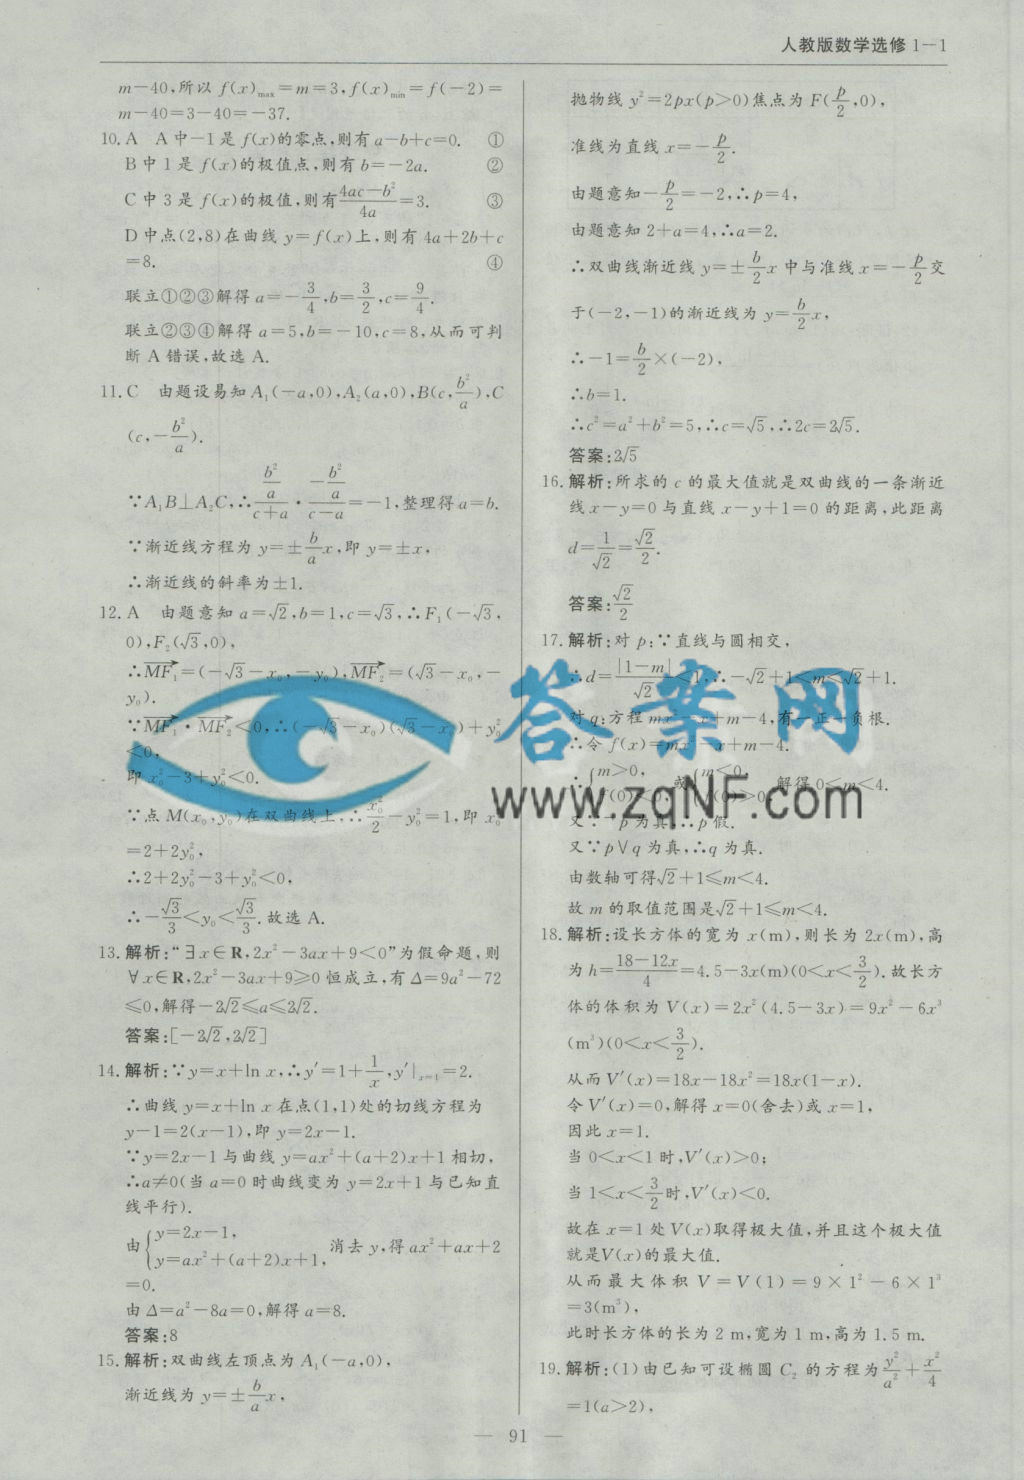 人教版数学选修 1-1
m-40,所以 f(x)max=m=3,f(x)min=f(-2)=
m-40=3-40=-37.
10.A A中-1是f(x)的零点,则有a-b+c=0. ①
B中1是f(x)的极值点,则有b=-2a. ②
C中3是f(x)的极值,则有(4ac-b²)/4a=3. ③
D中点(2,8)在曲线y=f(x)上,则有4a+2b+c
=8. ④
联立①②③解得a=-3/4,b=3/2,c=9/4.
联立②③④解得a=5,b=-10,c=8,从而可判
断A错误,故选A.
11.C 由题设易知A₁(-a,0),A₂(a,0),B(c,b²/a),C
(c,-b²/a).
∵A₁B⊥A₂C,∴(b²/a)/(c+a)·(-b²/a)/(c-a)=-1,整理得a=b.
∵渐近线方程为y=±(b/a)x,即y=±x,
∴渐近线的斜率为±1.
12.A 由题意知a=√2,b=1,c=√3,∴F₁(-√3,
0),F₂(√3,0),
∴MF₁=(-√3-x₀,-y₀),MF₂=(√3-x₀,-
y₀).
∵MF₁·MF₂<0,∴(-√3-x₀)(√3-x₀)+y₀²
<0,
即x₀²-3+y₀²<0.
∵点M(x₀,y₀)在双曲线上,∴x₀²/2-y₀²=1,即x₀²
=2+2y₀²,
∴2+2y₀²-3+y₀²<0,
∴-√3/3<y₀<√3/3.故选A.
13.解析:“∃x∈R,2x²-3ax+9<0”为假命题,则
∀x∈R,2x²-3ax+9≥0恒成立,有Δ=9a²-72
≤0,解得-2√2≤a≤2√2.
答案:[-2√2,2√2]
14.解析:∵y=x+ln x,∴y′=1+1/x,y′|x=1=2.
∴曲线y=x+ln x在点(1,1)处的切线方程为
y-1=2(x-1),即y=2x-1.
∵y=2x-1与曲线y=ax²+(a+2)x+1相切,
∴a≠0(当a=0时曲线变为y=2x+1与已知直
线平行).
由{y=2x-1,
y=ax²+(a+2)x+1, 消去y,得ax²+ax+2
=0.
由Δ=a²-8a=0,解得a=8.
答案:8
15.解析:双曲线左顶点为A₁(-a,0),
渐近线为y=±(b/a)x,
抛物线y²=2px(p>0)焦点为F(p/2,0),
准线为直线x=-p/2.
由题意知-p/2=-2,∴p=4,
由题意知2+a=4,∴a=2.
∴双曲线渐近线y=±(b/2)x中与准线x=-p/2交
于(-2,-1)的渐近线为y=(b/2)x,
∴-1=b/2×(-2),
∴b=1.
∴c²=a²+b²=5,∴c=√5,∴2c=2√5.
答案:2√5
16.解析:所求的c的最大值就是双曲线的一条渐近
线x-y=0与直线x-y+1=0的距离,此距离
d=1/√2=√2/2.
答案:√2/2
17.解析:对p:∵直线与圆相交,
∴d=|1-m|/√2<1,∴-√2+1<m<√2+1.
对q:方程mx²-x+m-4,有一正一负根.
∴令f(x)=mx²-x+m-4.
∴{m>0, f(0)<0, 或{m<0, f(0)>0, 解得0<m<4.
又∵¬p为真,∴p假.
又∵p∨q为真,∴q为真.
由数轴可得√2+1≤m<4.
故m的取值范围是√2+1≤m<4.
18.解析:设长方体的宽为x(m),则长为2x(m),高
为h=(18-12x)/4=4.5-3x(m)(0<x<3/2).故长方
体的体积为V(x)=2x²(4.5-3x)=9x²-6x³
(m³)(0<x<3/2).
从而V′(x)=18x-18x²=18x(1-x).
令V′(x)=0,解得x=0(舍去)或x=1,
因此x=1.
当0<x<1时,V′(x)>0;
当1<x<3/2时,V′(x)<0.
故在x=1处V(x)取得极大值,并且这个极大值
就是V(x)的最大值.
从而最大体积V=V(1)=9×1²-6×1³
=3(m³),
此时长方体的长为2 m,宽为1 m,高为1.5 m.
19.解析:(1)由已知可设椭圆C₂的方程为y²/a²+x²/4
=1(a>2),
答案网
www.zqNF.com
— 91 —